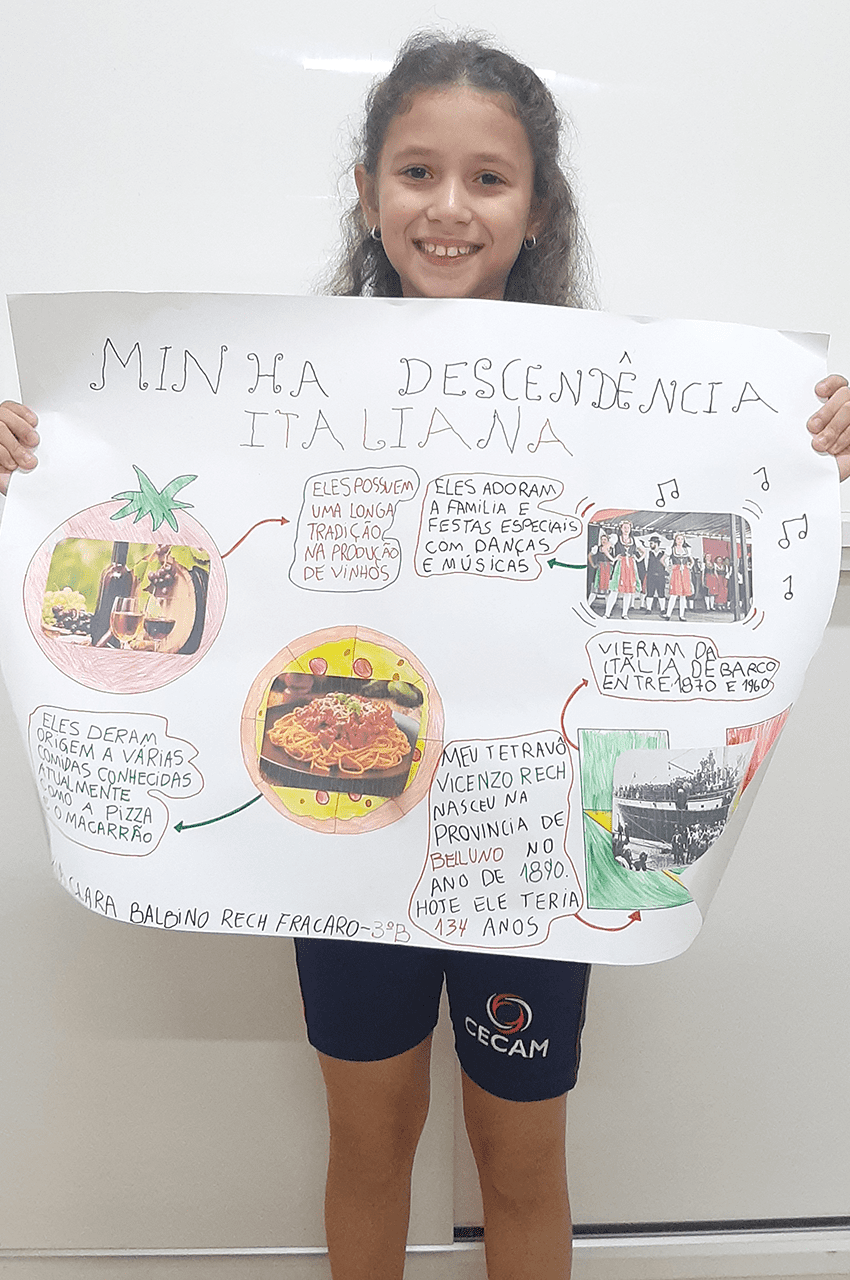 MINHA DESCENDÊNCIA
ITALIANA
ELES POSSUEM
UMA LONGA
TRADIÇÃO
NA PRODUÇÃO
DE VINHOS
ELES ADORAM
A FAMILIA E
FESTAS ESPECIAIS
COM DANÇAS
E MÚSICAS
VIERAM DA
ITÁLIA DE BARCO
ENTRE 1870 E 1960
ELES DERAM
ORIGEM A VÁRIAS
COMIDAS CONHECIDAS
ATUALMENTE
COMO A PIZZA
E O MACARRÃO
MEU TETRAVÔ
VICENZO RECH
NASCEU NA
PROVINCIA DE
BELLUNO NO
ANO DE 1890.
HOTE ELE TERIA
134 ANOS
CLARA BALBINO RECH FRACARO-3ºB
CECAM